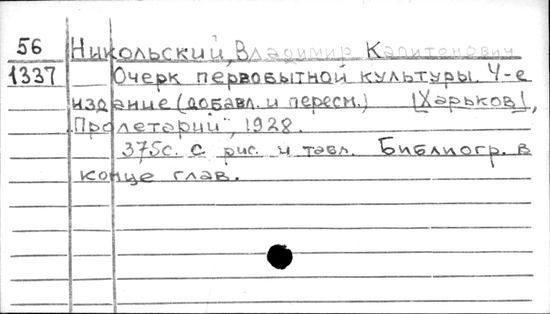 56 Никольский, Владимир Капитонович
1337 Очерк первобытной культуры. 4-е
издание (добавл. и пересм.) [Харьков],
"Пролетарий", 1928.
375с. с рис. и табл. Библиогр. в
конце глав.